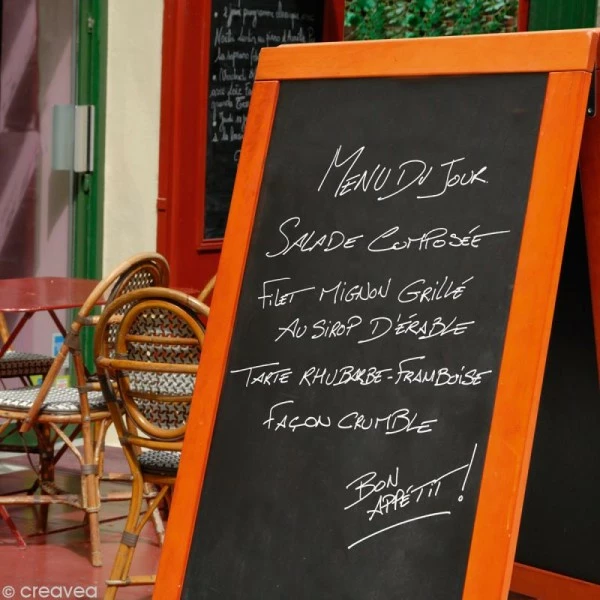 MENU DU JOUR
SALADE COMPOSÉE
FILET MIGNON GRILLÉ
AU SIROP D'ÉRABLE
TARTE RHUBARBE-FRAMBOISE
FAÇON CRUMBLE
BON
APPÉTIT !
© creavea